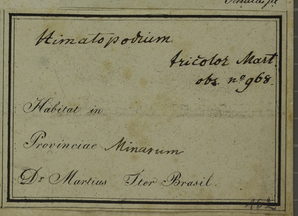 Himatopodium
tricolor Mart
obs. nº 968.
Habitat in
Provinciae Minarum
Dr Martius Iter Brasil.